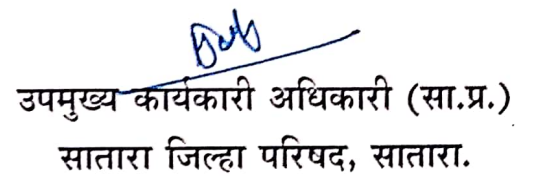 उपमुख्य कार्यकारी अधिकारी (सा.प्र.)
सातारा जिल्हा परिषद, सातारा.